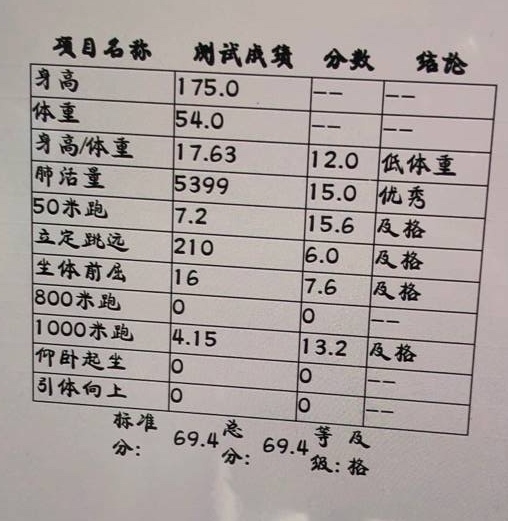 项目名称 测试成绩 分数 结论
身高 175.0 -- --
体重 54.0 -- --
身高/体重 17.63 12.0 低体重
肺活量 5399 15.0 优秀
50米跑 7.2 15.6 及格
立定跳远 210 6.0 及格
坐体前屈 16 7.6 及格
800米跑 0 0 --
1000米跑 4.15 13.2 及格
仰卧起坐 0 0 --
引体向上 0 0 --
标准分: 69.4 总分: 69.4 等级: 及格